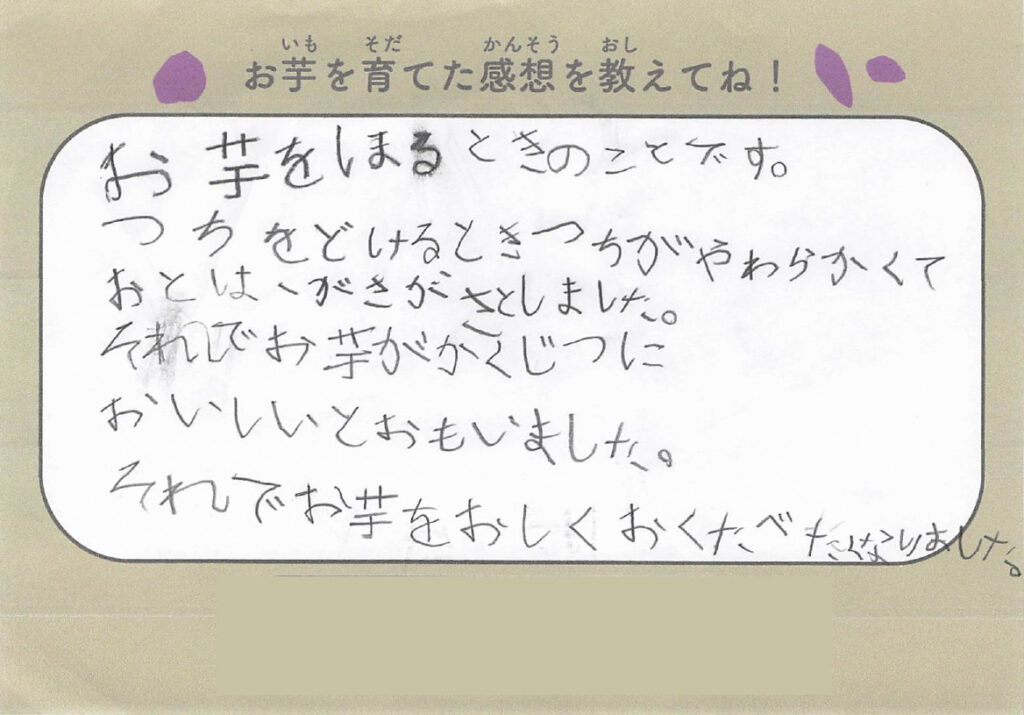 いも そだ かんそう おし
お芋を育てた感想を教えてね！
お芋をほるときのことです。
つちをどけるときつちがやわらかくて
おとは、がさがさとしました。
それでお芋がかくじつに
おいしいとおもいました。
それでお芋をおしくおくたべたくなりました。